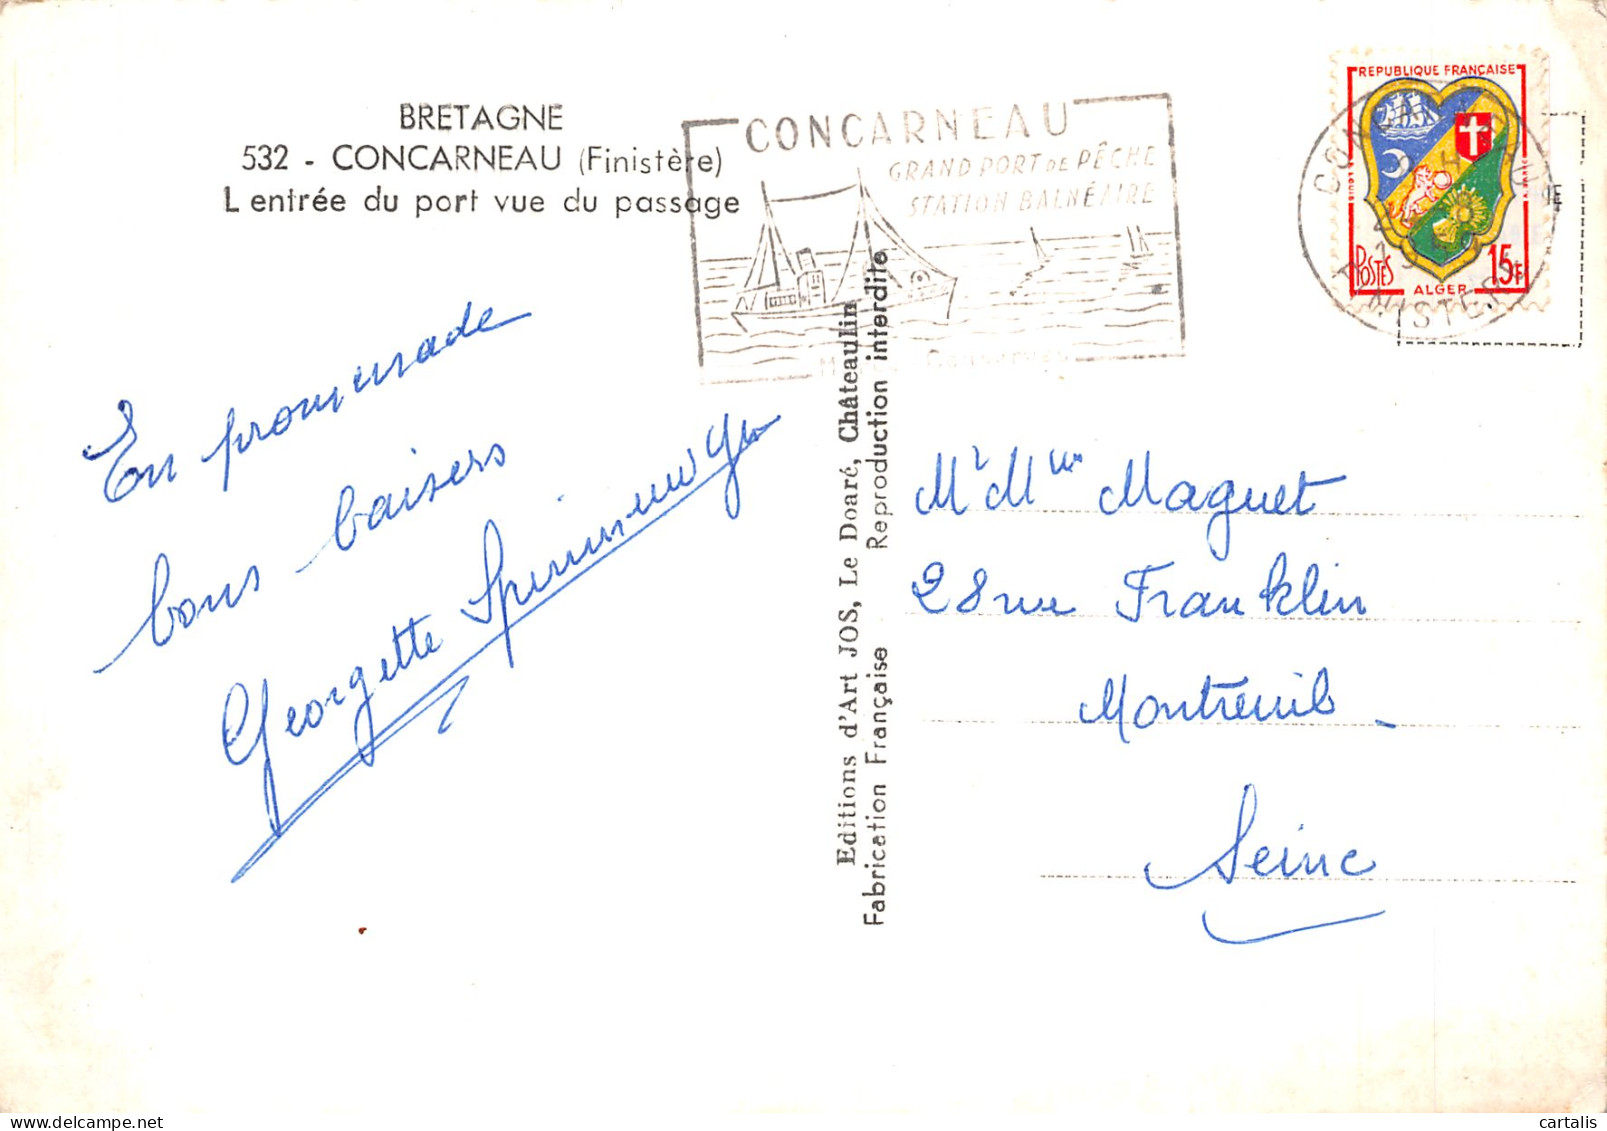 BRETAGNE
532 - CONCARNEAU (Finistère)
L entrée du port vue du passage
CONCARNEAU
GRAND PORT DE PÊCHE
STATION BALNÉAIRE
REPUBLIQUE FRANÇAISE
POSTES
15F
ALGER
En promenade
bons baisers
Georgette
Editions d'Art JOS, Le Doaré, Châteaulin
Fabrication Française Reproduction interdite
Mr Mme Maguet
28 rue Franklin
Montreuil
Seine
cartalis